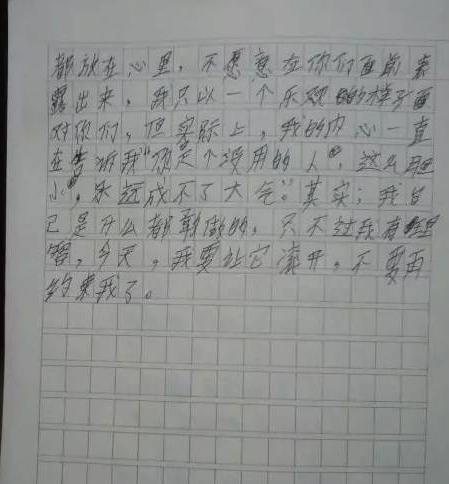 都放在心里，不愿意在你们面前表
露出来，我只以一个乐观的样子面
对你们，但实际上，我的内心一直
在告诉我“你是个没用的人，这么胆
小，永远成不了大气。”其实，我自
己是什么都敢做的，只不过我有理
智，今天，我要让它滚开，不要再
约束我了。